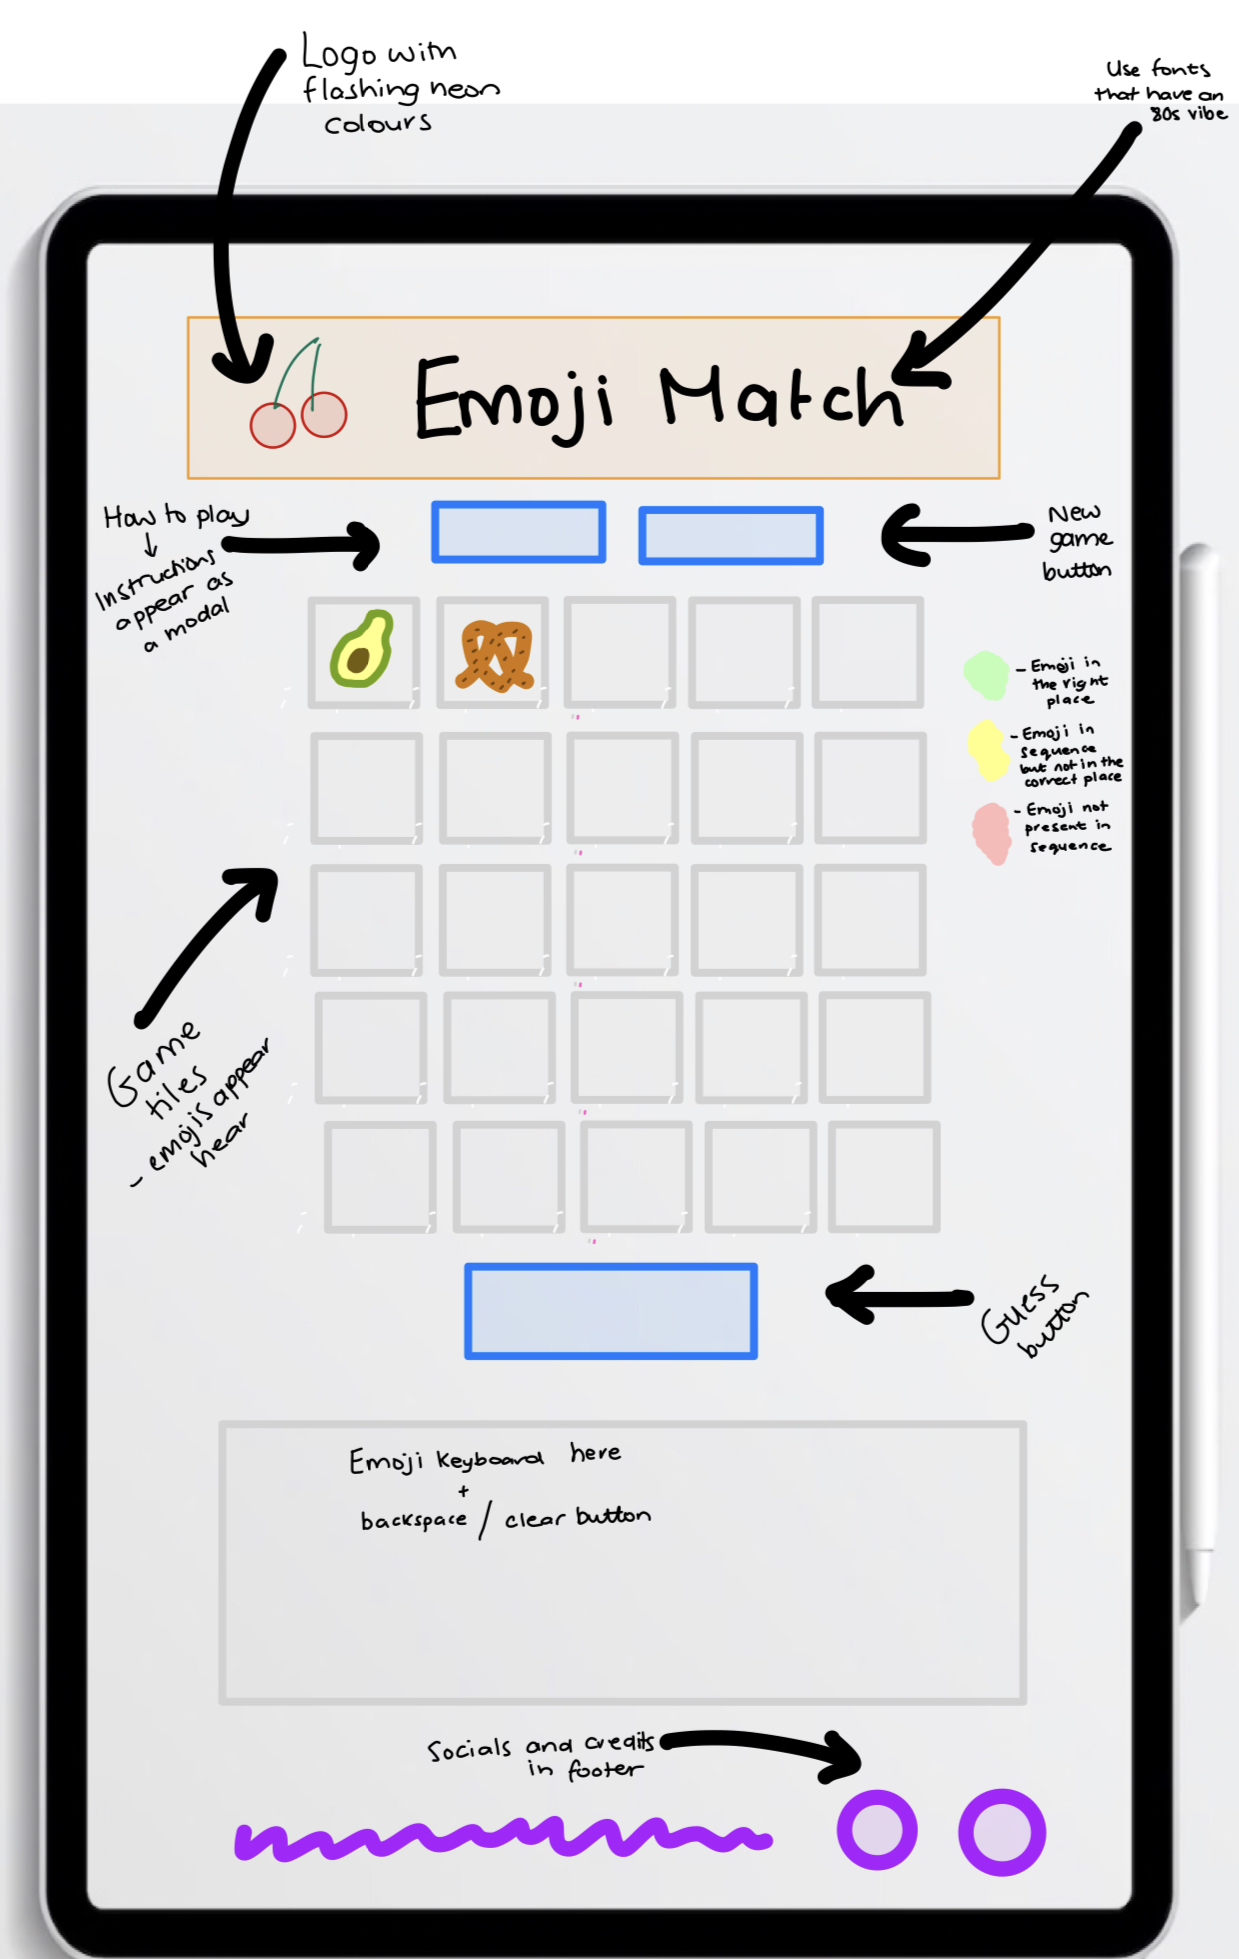 Logo with
flashing neon
colours
Use fonts
that have an
80s vibe
Emoji Match
How to play
↓
Instructions
appear as
a modal
New
game
button
- Emoji in
the right
place
- Emoji in
sequence
but not in the
correct place
- Emoji not
present in
sequence
Game
tiles
- emojis appear
hear
Guess
button
Emoji Keyboard here
+
backspace / clear button
Socials and credits
in footer